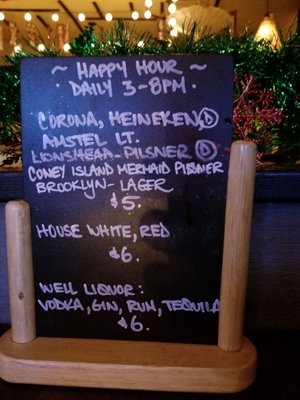 ~ HAPPY HOUR ~
· DAILY 3-8PM ·
CORONA, HEINEKEN, D
AMSTEL LT.
LIONSHEAD-PILSNER D
CONEY ISLAND MERMAID PILSNER
BROOKLYN-LAGER
$5.
HOUSE WHITE, RED
$6.
WELL LIQUOR:
VODKA, GIN, RUM, TEQUILA
$6.